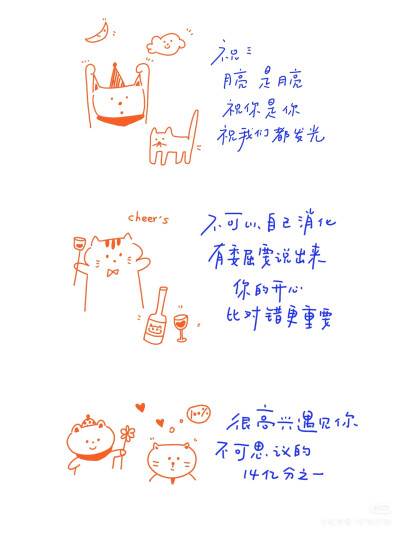 祝:
月亮是月亮
祝你是你
祝我们都发光
cheer's
不可以自己消化
有委屈要说出来
你的开心
比对错更重要
100%
很高兴遇见你
不可思议的
14亿分之一